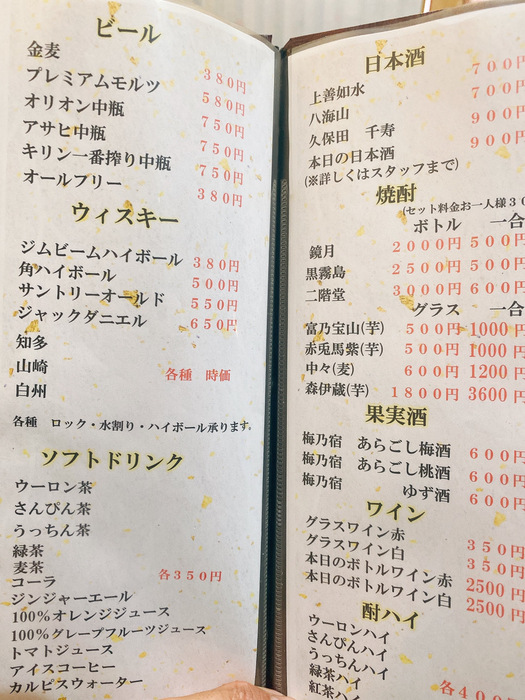 ビール
金麦 380円
プレミアムモルツ 580円
オリオン中瓶 750円
アサヒ中瓶 750円
キリン一番搾り中瓶 750円
オールフリー 380円
ウィスキー
ジムビームハイボール 380円
角ハイボール 500円
サントリーオールド 550円
ジャックダニエル 650円
知多
山崎 各種 時価
白州
各種 ロック・水割り・ハイボール承ります。
ソフトドリンク
ウーロン茶
さんぴん茶
うっちん茶
緑茶
麦茶
コーラ 各350円
ジンジャーエール
100%オレンジジュース
100%グレープフルーツジュース
トマトジュース
アイスコーヒー
カルピスウォーター
日本酒
上善如水 700円
八海山 700円
久保田 千寿 900円
本日の日本酒 900円
(※詳しくはスタッフまで)
焼酎
(セット料金お一人様30
ボトル 一合
鏡月 2000円 500円
黒霧島 2500円 500円
二階堂 3000円 600円
グラス 一合
富乃宝山(芋) 500円 1000円
赤兎馬紫(芋) 500円 1000円
中々(麦) 600円 1200円
森伊蔵(芋) 1800円 3600円
果実酒
梅乃宿 あらごし梅酒 600円
梅乃宿 あらごし桃酒 600円
梅乃宿 ゆず酒 600円
ワイン
グラスワイン赤 350円
グラスワイン白 350円
本日のボトルワイン赤 2500円
本日のボトルワイン白 2500円
酎ハイ
ウーロンハイ
さんぴんハイ
うっちんハイ
緑茶ハイ 各400
紅茶ハイ